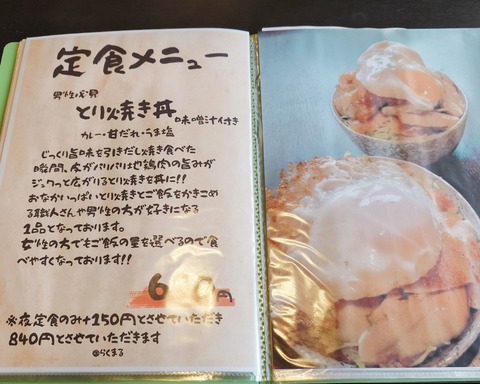 定食メニュー
男性必見
とり焼き丼 味噌汁付き
カレー・甘だれ・うま塩
じっくり旨味を引きだし焼き食べた
瞬間、皮がパリパリ!地鶏肉の旨みが
ジュワっと広がるとり焼きを丼に!!
おなかいっぱいとり焼きとご飯をかきこめ
る職人さんや男性の方が好きになる
1品となっております。
女性の方でもご飯の量を選べるので食
べやすくなっております!!
円
※夜定食のみ+150円とさせていただき
840円とさせていただきます
@らくまる